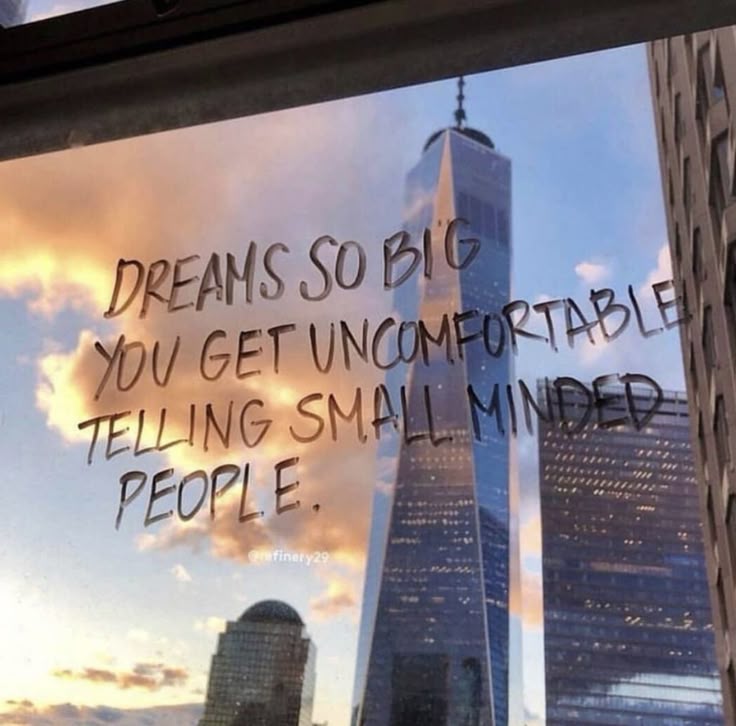 DREAMS SO BIG
YOU GET UNCOMFORTABLE
TELLING SMALL MINDED
PEOPLE.
@refinery29